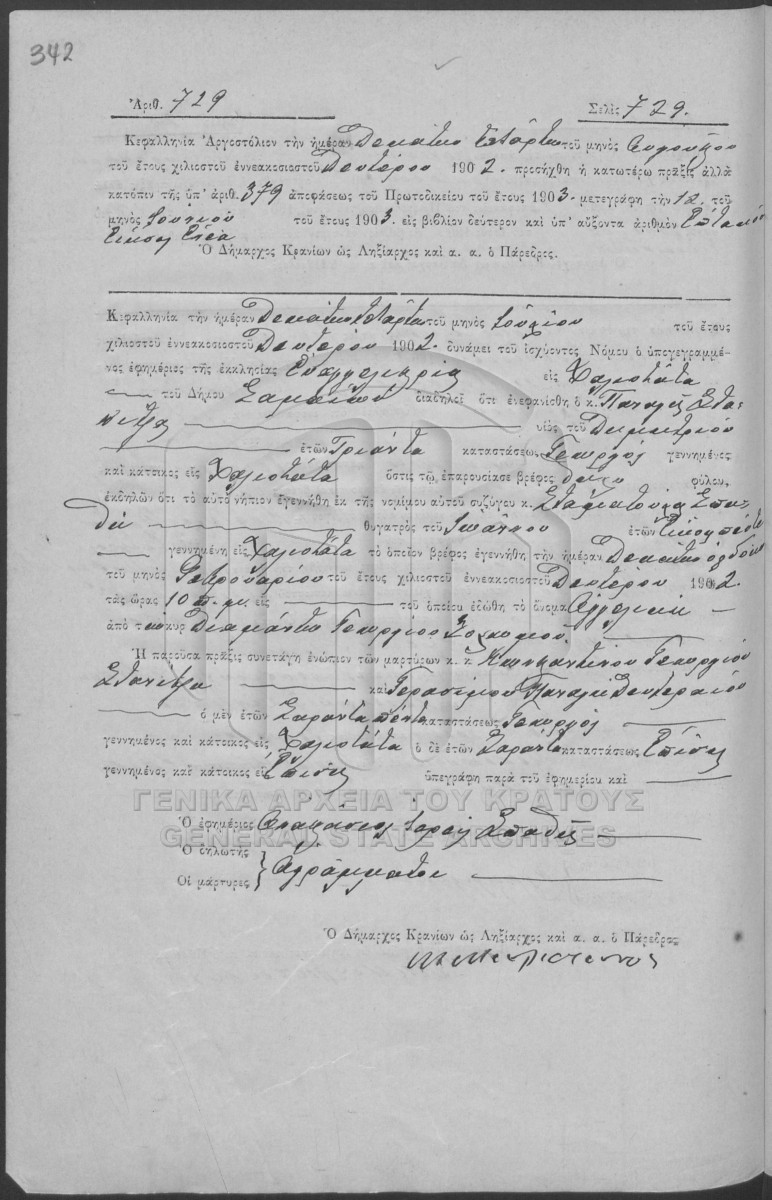 342
Ἀριθ. 729 Σελὶς 729.
Κεφαλληνία Ἀργοστόλιον τὴν ἡμέραν Δεκάτην τοῦ μηνὸς
τοῦ ἔτους χιλιοστοῦ ἐννεακοσιοστοῦ Δευτέρου 1902. προσήχθη ἡ κατωτέρω πρᾶξις ἀλλὰ
κατόπιν τῆς ὑπ' ἀριθ. 379 ἀποφάσεως τοῦ Πρωτοδικείου τοῦ ἔτους 1903. μετεγράφη τὴν 12. τοῦ
μηνὸς Ιουνίου τοῦ ἔτους 1903. εἰς βιβλίον δεύτερον καὶ ὑπ' αὔξοντα ἀριθμὸν Επτακόσια
Είκοσι Εννέα
Ὁ Δήμαρχος Κρανίων ὡς Ληξίαρχος καὶ α. α. ὁ Πάρεδρος.
Κεφαλληνία τὴν ἡμέραν Δεκάτην τοῦ μηνὸς τοῦ ἔτους
χιλιοστοῦ ἐννεακοσιοστοῦ Δευτέρου 1902. δυνάμει τοῦ ἰσχύοντος Νόμου ὁ ὑπογεγραμμέ-
νος ἐφημέριος τῆς ἐκκλησίας Ευαγγελιστρία εἰς Χαλιοτάτα
τοῦ Δήμου Σαμαίων διαδηλοῖ ὅτι ἐνεφανίσθη ὁ κ. Παναγῆς
υἱὸς τοῦ Δημητρίου
ἐτῶν Τριάντα καταστάσεως Γεωργὸς γεννημένος
καὶ κάτοικος εἰς Χαλιοτάτα ὅστις τῷ ἐπαρουσίασε βρέφος φύλου,
ἐκδηλῶν ὅτι τὸ αὐτὸ νήπιον ἐγεννήθη ἐκ τῆς νομίμου αὐτοῦ συζύγου κ. Σταματούλα Σπα-
θή θυγατρὸς τοῦ Ιωάννου ἐτῶν Είκοσι πέντε
γεννημένη εἰς Χαλιοτάτα τὸ ὁποῖον βρέφος ἐγεννήθη τὴν ἡμέραν Δεκάτην ογδόην
τοῦ μηνὸς Φεβρουαρίου τοῦ ἔτους χιλιοστοῦ ἐννεακοσιοστοῦ Δευτέρου 1902.
τὰς ὥρας 10 π.μ. εἰς τοῦ ὁποίου ἐδώθη τὸ ὄνομα Αγγελική
ἀπὸ τον κυρ Διαμάντω Γεωργίου
Ἡ παροῦσα πρᾶξις συνετάγη ἐνώπιον τῶν μαρτύρων κ. κ. Κωνσταντίνου Γεωργίου
καὶ Γερασίμου Παναγή
ὁ μὲν ἐτῶν Σαράντα πέντε καταστάσεως Γεωργὸς
γεννημένος καὶ κάτοικος εἰς Χαλιοτάτα ὁ δὲ ἐτῶν Σαράντα καταστάσεως Επίσης
γεννημένος καὶ κάτοικος εἰς Επίσης ὑπεγράφη παρὰ τοῦ ἐφημερίου καὶ
ΓΕΝΙΚΑ ΑΡΧΕΙΑ ΤΟΥ ΚΡΑΤΟΥΣ
GENERAL STATE ARCHIVES
Ὁ ἐφημέριος Ιερεύς Σπαθής
Ὁ δηλωτὴς
Οἱ μάρτυρες } Αγράμματοι
Ὁ Δήμαρχος Κρανίων ὡς Ληξίαρχος καὶ α. α. ὁ Πάρεδρος